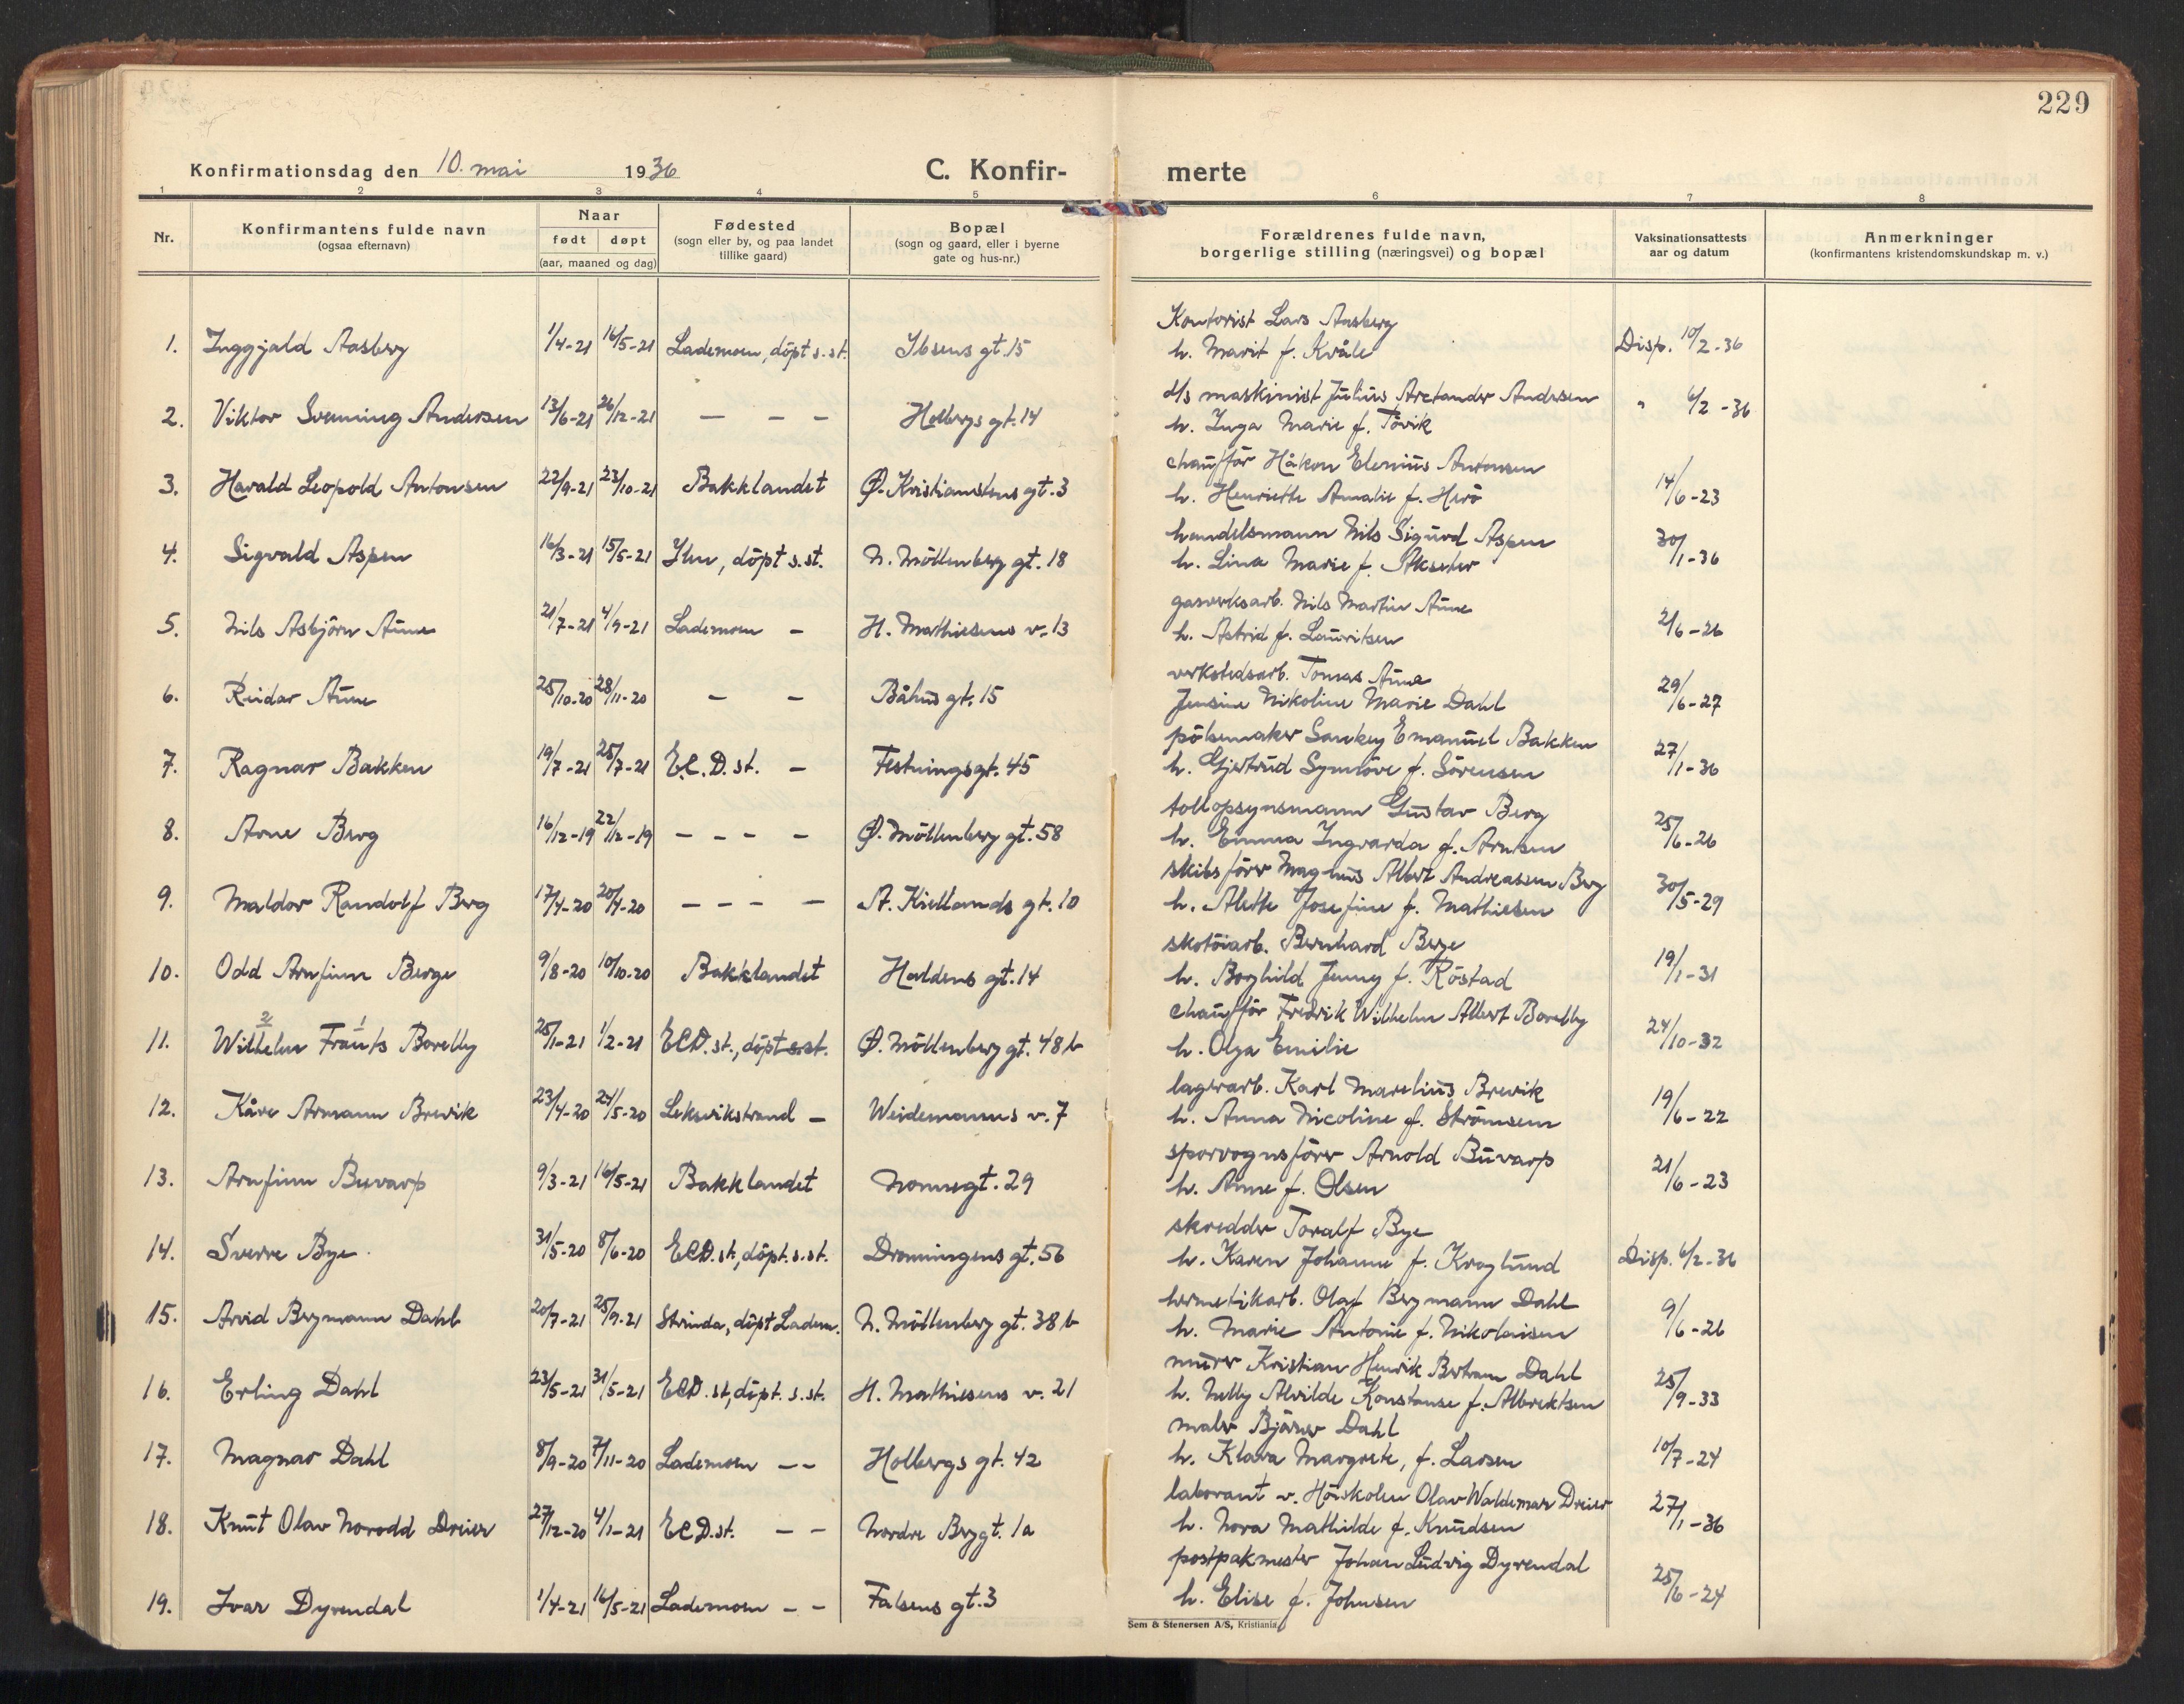 229
Konfirmationsdag den 10. mai 1936
C. Konfir-
merte
1 2 3 4 5 6 7 8
Nr.
Konfirmantens fulde navn
(ogsaa efternavn)
Naar
født døpt
(aar, maaned og dag)
Fødested
(sogn eller by, og paa landet
tillike gaard)
Bopæl
(sogn og gaard, eller i byerne
gate og hus-nr.)
Forældrenes fulde navn,
borgerlige stilling (næringsvei) og bopæl
Vaksinationsattests
aar og datum
Anmerkninger
(konfirmantens kristendomskundskap m. v.)
Kontorist Lars Aasberg
1. Inggjald Aasberg 1/4-21 16/5-21 Lademoen, döpt s.st. Ibsens gt. 15 h. Marit f. Kvåle Disp. 10/2-36
d/s maskinist Julius Arctander Andersen
2. Viktor Svenning Andersen 13/6-21 26/12-21 — — — Holbergs gt. 14 h. Inga Marie f. Tövik " 6/2-36
chaufför Håkon Elenius Antonsen
3. Harald Leopold Antonsen 22/9-21 23/10-21 Bakklandet Ø. Kristianstens gt. 3 h. Henriette Amalie f. Herö 14/6-23
handelsmann Nils Sigurd Aspen
4. Sigvald Aspen 16/3-21 15/5-21 Ilen, döpt s.st. N. Möllenberg gt. 18 h. Lina Marie f. Akseter 30/1-36
gasverksarb. Nils Martin Aune
5. Nils Asbjörn Aune 21/7-21 4/9-21 Lademoen — H. Mathiesens v. 13 h. Astrid f. Lauritsen 2/6-26
verkstedsarb. Tomas Aune
6. Reidar Aune 25/10-20 28/11-20 — — Båhus gt. 15 Jensine Nikoline Marie Dahl 29/6-27
pölsemaker Sankey Emanuel Bakken
7. Ragnar Bakken 19/7-21 25/7-21 E.C.D. st. — Festningsgt. 45 h. Gjertrud Synnöve f. Sörensen 27/1-36
tollopsynsmann Gustav Berg
8. Arne Berg 16/12-19 22/12-19 — — — — Ø. Möllenberg gt. 58 h. Emma Ingvarda f. Arntsen 25/6-26
skibsförer Magnus Albert Andreassen Berg
9. Maldor Randolf Berg 17/4-20 20/4-20 — — — — A. Kiellands gt. 10 h. Alette Josefine f. Mathiesen 30/5-29
skotöiarb. Bernhard Berge
10. Odd Arnfinn Berge 9/8-20 10/10-20 Bakklandet Haldens gt. 14 h. Borghild Jenny f. Röstad 19/1-31
chaufför Fredrik Wilhelm Albert Borelly
2 1
11. Wilhelm Frants Borelly 25/1-21 1/2-21 ECD. st., döpt s.st. Ø. Möllenberg gt. 48 b h. Olga Emilie 24/10-32
lagerarb. Karl Marelius Brevik
12. Kåre Armann Brevik 23/4-20 24/5-20 Leksvikstrand — Weidemanns v. 7 h. Anna Nicoline f. Strömsem 19/6-22
sporvognsförer Arnold Buvarp
13. Arnfinn Buvarp 9/3-21 16/5-21 Bakklandet Nonnegt. 29 h. Anne f. Olsen 21/6-23
skredder Toralf Bye
14. Sverre Bye 31/5-20 8/6-20 ECD. st, döpt. s.st. Dronningens gt. 56 h. Karen Johanne f. Kroglund Disp. 6/2-36
hermetikarb. Olaf Bergmann Dahl
15. Arvid Bergmann Dahl 20/7-21 25/9-21 Strinda, döpt Ladem. N. Möllenberg gt. 38 b h. Marie Antonie f. Nikolaisen 9/6-26
murer Kristian Henrik Bertram Dahl
16. Erling Dahl 23/5-21 31/5-21 ECD. st, döpt. s.st. H. Mathiesens v. 21 h. Nelly Alvilde Konstanse f. Albrektsen 25/9-33
maler Björner Dahl
17. Magnar Dahl 8/9-20 7/11-20 Lademoen — — Holbergs gt. 42 h. Klara Margrete, f. Larsen 10/7-24
laborant v. Höiskolen Olav Waldemar Dreier
18. Knut Olav Norodd Dreier 27/12-20 4/1-21 ECD. st. — — Nordre Berggt. 1a h. Nora Mathilde f. Knudsen 27/1-36
postpakmester Johan Ludvig Dyrendal
19. Ivar Dyrendal 1/4-21 16/5-21 Lademoen — — Falsens gt. 3 h. Elise f. Johnsen 25/6-24
Sem & Stenersen A/S, Kristiania